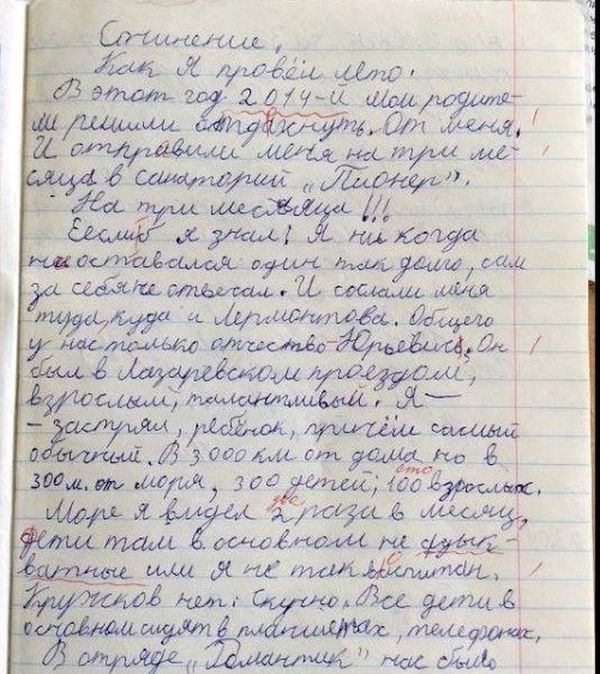 Сочинение.
Как я провёл лето.
В этот год 2014-й мои родите-
ли решили отдахнуть. От меня.
И отправили меня на три ме-
сяца в санаторий „Пионер".
На три месяца!!!
Еесли б я знал! Я ни когда
не оставался один так долго, сам
за себя не отвечал. И сослали меня
туда, куда и Лермонтова. Общего
у нас только отчество - Юрьевич. Он
был в Лазаревском проездом,
взрослый, талантливый. Я —
- застрял, ребёнок, причём самый
обычный. В 3000 км от дома но в
сто
300 м. от моря, 300 детей, 100 взрослых.
две
Море я видел 2 раза в месяц,
дети там в основном не адык-
ватные или я не так воспитан.
Кружков нет. Скучно. Все дети в
основном сидят в планшетах, телефонах.
В отряде „Романтик" нас было